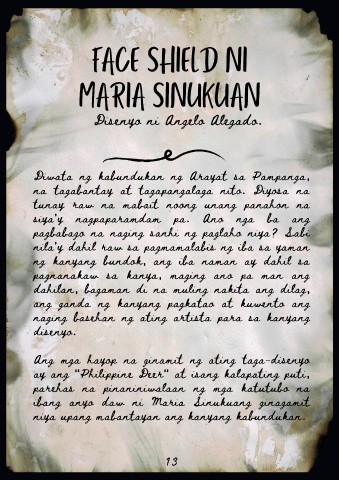 FACE SHIELD NI
MARIA SINUKUAN
Disenyo ni Angelo Alegado.
Diwata ng kabundukan ng Arayat sa Pampanga,
na tagabantay at tagapangalaga nito. Diyosa na
tunay raw na mabait noong unang panahon na
siya'y nagpaparamdam pa. Ano nga ba ang
pagbabago na naging sanhi ng paglaho niya? Sabi
nila'y dahil raw sa pagmamalabis ng iba sa yaman
ng kanyang bundok, ang iba naman ay dahil sa
pagnanakaw sa kanya, maging ano pa man ang
dahilan, bagaman di na muling nakita ang dilag,
ang ganda ng kanyang pagkatao at kuwento ang
naging basehan ng ating artista para sa kanyang
disenyo.
Ang mga hayop na ginamit ng ating taga-disenyo
ay ang "Philippine Deer" at isang kalapating puti,
parehas na pinaniniwalaan ng mga katutubo na
ibang anyo daw ni Maria Sinukuang ginagamit
niya upang mabantayan ang kanyang kabundukan.
13